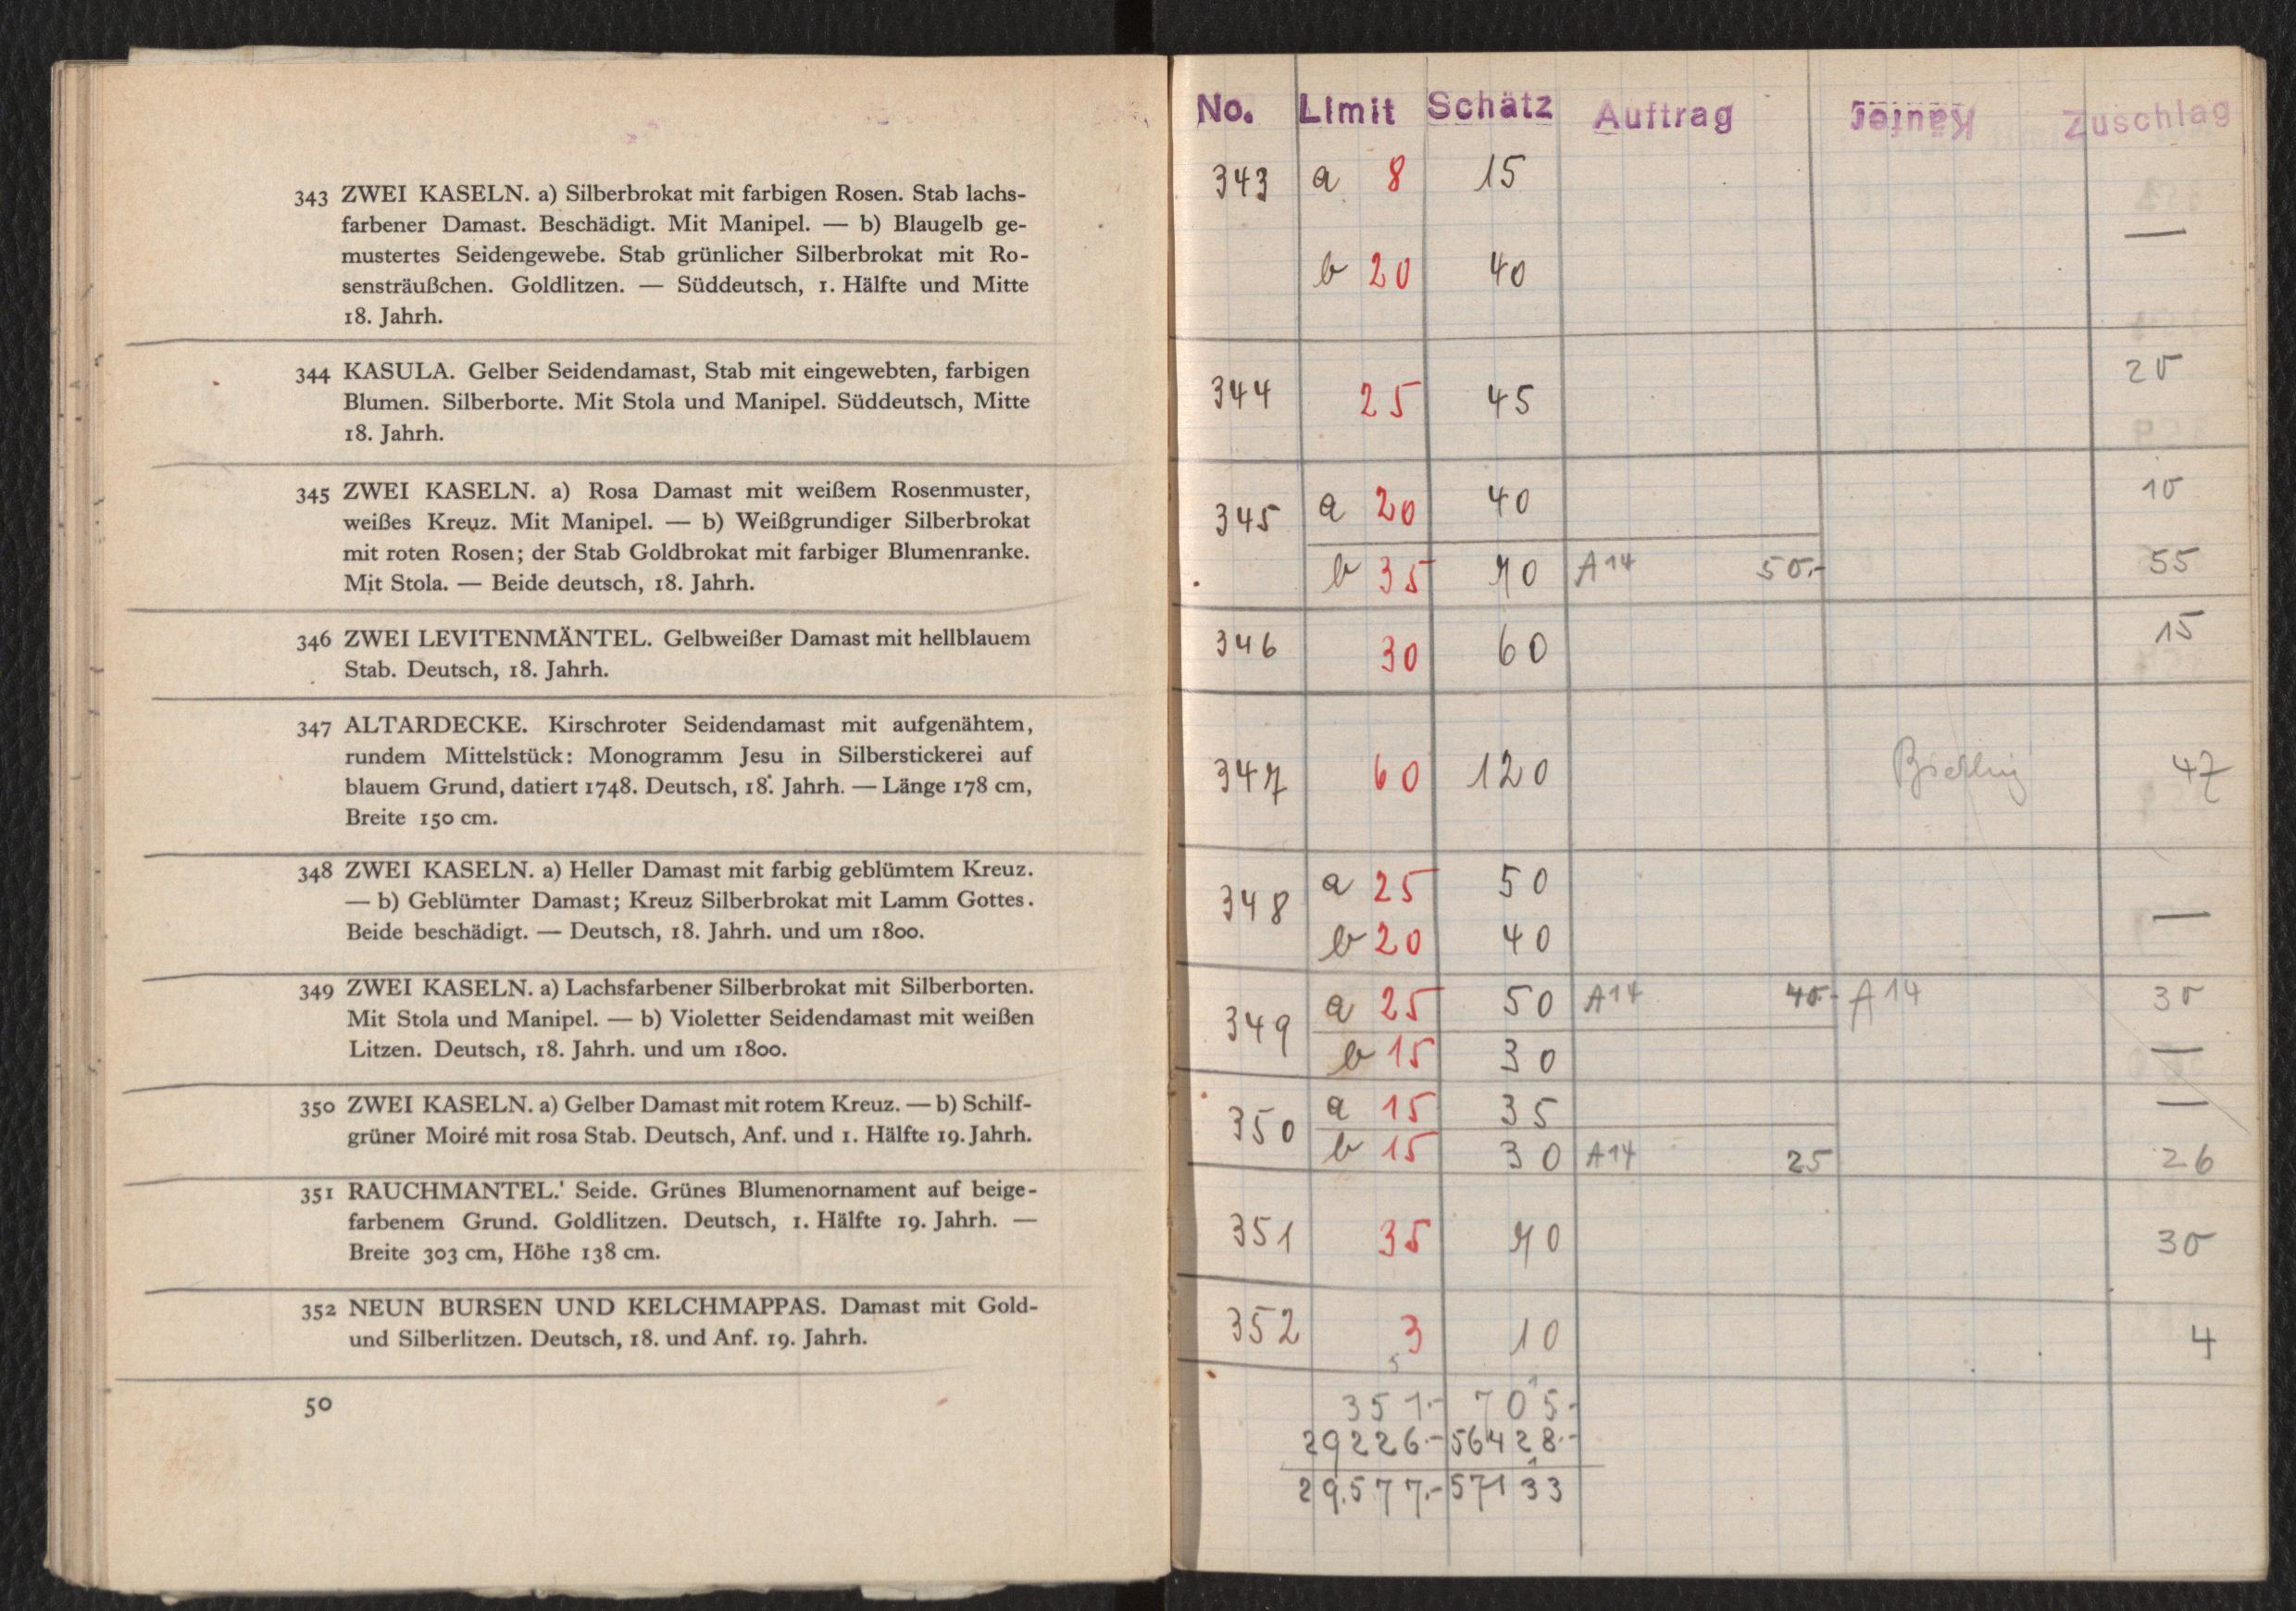 343 ZWEI KASELN. a) Silberbrokat mit farbigen Rosen. Stab lachs-
farbener Damast. Beschädigt. Mit Manipel. — b) Blaugelb ge-
mustertes Seidengewebe. Stab grünlicher Silberbrokat mit Ro-
sensträußchen. Goldlitzen. — Süddeutsch, 1. Hälfte und Mitte
18. Jahrh.
344 KASULA. Gelber Seidendamast, Stab mit eingewebten, farbigen
Blumen. Silberborte. Mit Stola und Manipel. Süddeutsch, Mitte
18. Jahrh.
345 ZWEI KASELN. a) Rosa Damast mit weißem Rosenmuster,
weißes Kreuz. Mit Manipel. — b) Weißgrundiger Silberbrokat
mit roten Rosen; der Stab Goldbrokat mit farbiger Blumenranke.
Mit Stola. — Beide deutsch, 18. Jahrh.
346 ZWEI LEVITENMÄNTEL. Gelbweißer Damast mit hellblauem
Stab. Deutsch, 18. Jahrh.
347 ALTARDECKE. Kirschroter Seidendamast mit aufgenähtem,
rundem Mittelstück: Monogramm Jesu in Silberstickerei auf
blauem Grund, datiert 1748. Deutsch, 18. Jahrh. — Länge 178 cm,
Breite 150 cm.
348 ZWEI KASELN. a) Heller Damast mit farbig geblümtem Kreuz.
— b) Geblümter Damast; Kreuz Silberbrokat mit Lamm Gottes.
Beide beschädigt. — Deutsch, 18. Jahrh. und um 1800.
349 ZWEI KASELN. a) Lachsfarbener Silberbrokat mit Silberborten.
Mit Stola und Manipel. — b) Violetter Seidendamast mit weißen
Litzen. Deutsch, 18. Jahrh. und um 1800.
350 ZWEI KASELN. a) Gelber Damast mit rotem Kreuz. — b) Schilf-
grüner Moiré mit rosa Stab. Deutsch, Anf. und 1. Hälfte 19. Jahrh.
351 RAUCHMANTEL. Seide. Grünes Blumenornament auf beige-
farbenem Grund. Goldlitzen. Deutsch, 1. Hälfte 19. Jahrh. —
Breite 303 cm, Höhe 138 cm.
352 NEUN BURSEN UND KELCHMAPPAS. Damast mit Gold-
und Silberlitzen. Deutsch, 18. und Anf. 19. Jahrh.
50
No. Limit Schätz Auftrag Käufer Zuschlag
343 a 8 15
—
b 20 40
344 25 45 20
345 a 20 40 10
b 35 70 A14 50.- 55
346 30 60 15
347 60 120 47
348 a 25 50
—
b 20 40
349 a 25 50 A14 40.- A14 30
b 15 30 —
350 a 15 35 —
b 15 30 A14 25 26
351 35 70 30
352 3 10 4
351.- 705.-
29226.- 56428.-
29.577.- 57133